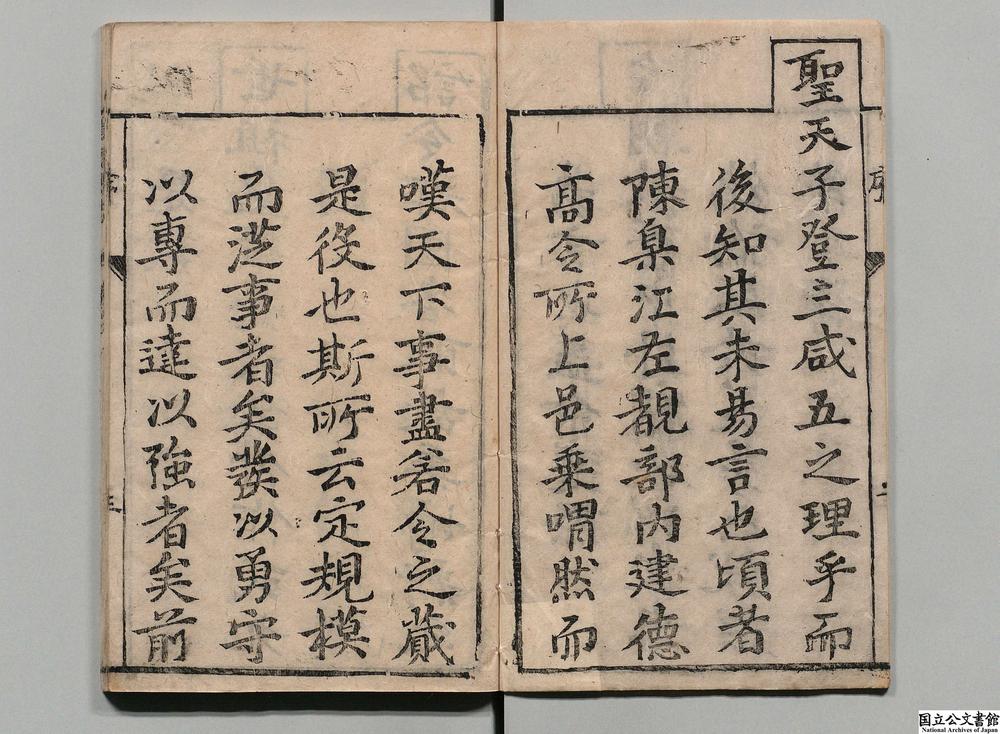 聖天子登三咸五之理乎而
後知其未易言也頃者
陳臬江左覩部內建德
髙令所上邑乗喟然而
嘆天下事盡若令之蕆
是役也斯所云定規模
而涖事者矣發以勇守
以專而達以強者矣前
序
序
国立公文書館
National Archives of Japan